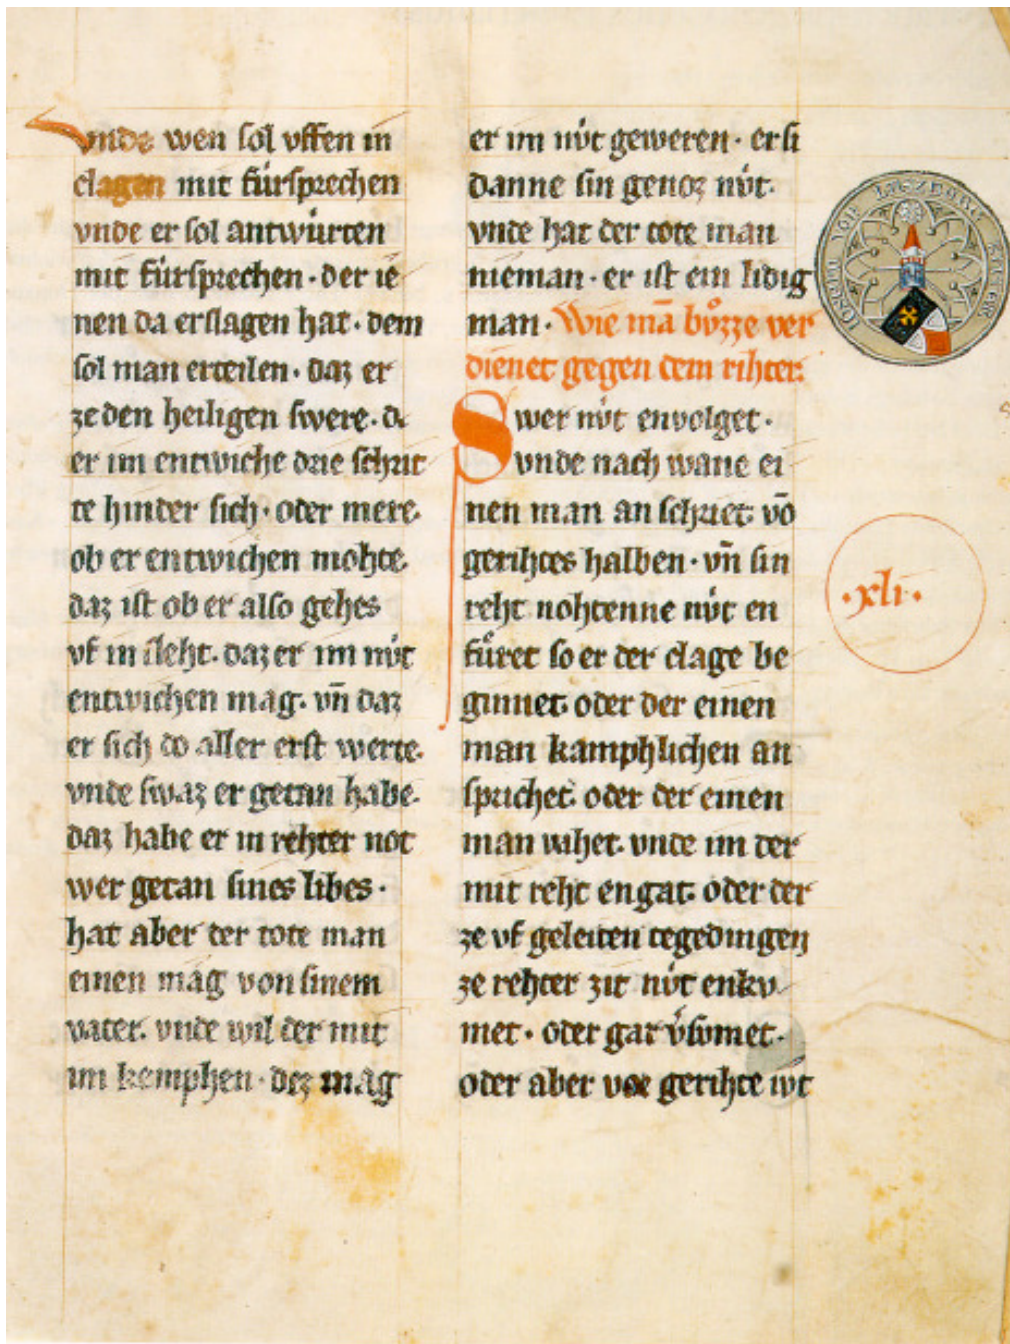 vnde wen sol vffen in
clagen mit fúrsprechen
vnde er sol antwúrten
mit fúrsprechen · der ie
nen da erslagen hat · dem
sol man erteilen · daz er
ze den heiligen swere · dc
er im entwiche drie schrit
te hinder sich · oder mere.
ob er entwichen mohte.
daz ist ob er also gehes
vf in sleht. daz er im nv̍t
entwichen mag. vn̄ daz
er sich do aller erst werte.
vnde swaz er getan habe.
daz habe er in rehter not
wer getan sines libes ·
hat aber der tote man
einen mag von sinem
vater. vnde wil der mit
im kemphen · dez mag
er im nv̍t geweren · er si
danne sin genoz nv̍t.
vnde hat der tote man
nieman · er ist ein lidig
man · Wie mā bůzze ver
dienet gegen dem rihter.
Swer nv̍t envolget ·
vnde nach wane ei
nen man an schriet. vō
gerihtes halben · vn̄ sin
reht nohtenne nv̍t en
fůret so er der clage be
ginnet. oder der einen
man kamphlichen an
sprichet. oder der einen
man vahet. vnde im der
mit reht engat. oder der
ze vf geleiten tegedingen
ze rehter zit nv̍t enkv
met · oder gar v̍svmet ·
oder aber vor gerihte nv̍t
· xli ·